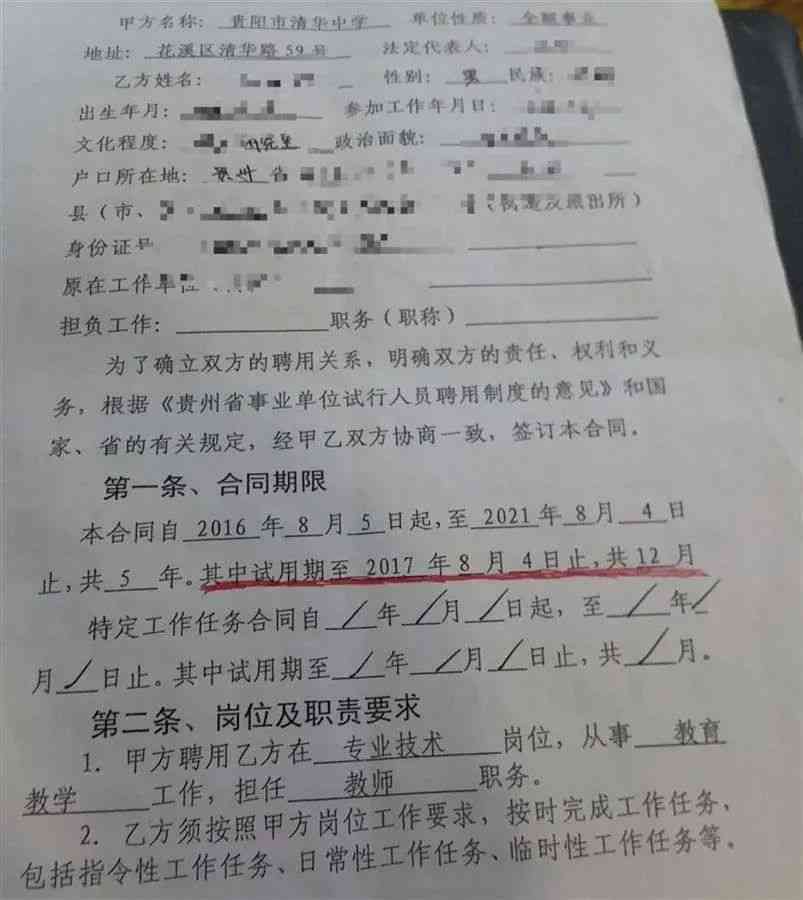 甲方名称：贵阳市清华中学 单位性质：全额事业
地址：花溪区清华路59号 法定代表人：
乙方姓名： 性别：男 民族：
出生年月： 参加工作年月日：
文化程度： 研究生 政治面貌：
户口所在地：贵州省
县（市、 派出所）
身份证号
原在工作单位
担负工作： 职务（职称）
为了确立双方的聘用关系，明确双方的责任、权利和义
务，根据《贵州省事业单位试行人员聘用制度的意见》和国
家、省的有关规定，经甲乙双方协商一致，签订本合同。
第一条、合同期限
本合同自 2016 年 8 月 5 日起，至 2021 年 8 月 4 日
止，共 5 年。其中试用期至 2017 年 8 月 4 日止，共 12 月
特定工作任务合同自 / 年 / 月 / 日起，至 / 年 /
月 / 日止。其中试用期至 / 年 / 月 / 日止，共 / 月。
第二条、岗位及职责要求
1. 甲方聘用乙方在 专业技术 岗位，从事 教育
教学 工作，担任 教师 职务。
2. 乙方须按照甲方岗位工作要求，按时完成工作任务，
包括指令性工作任务、日常性工作任务、临时性工作任务等。